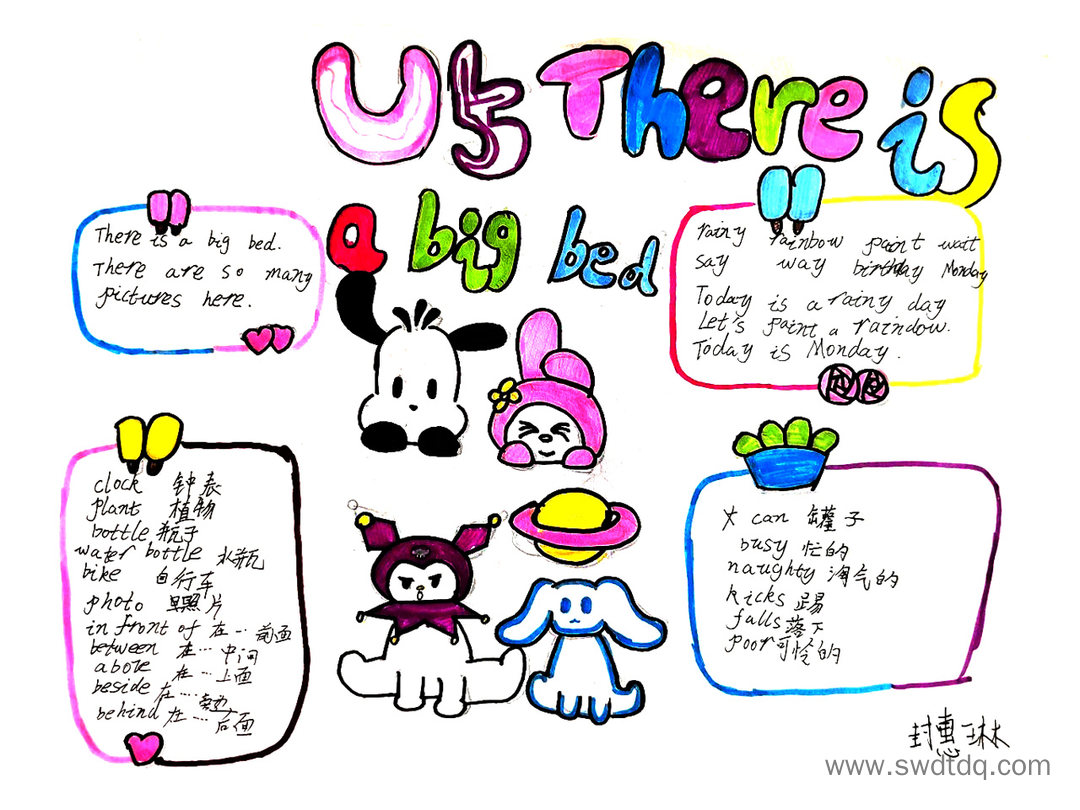 U5 There is
a big bed
There is a big bed.
There are so many
pictures here.
rainy rainbow paint wait
say way birthday Monday
Today is a rainy day
Let's paint a raindow.
Today is Monday.
clock 钟表
plant 植物
bottle 瓶子
water bottle 水瓶
bike 自行车
photo 照片
in front of 在…前面
between 在…中间
above 在…上面
beside 在…旁边
behind 在…后面
can 罐子
busy 忙的
naughty 淘气的
kicks 踢
falls 落下
poor 可怜的
封惠琳
www.swdtdq.com